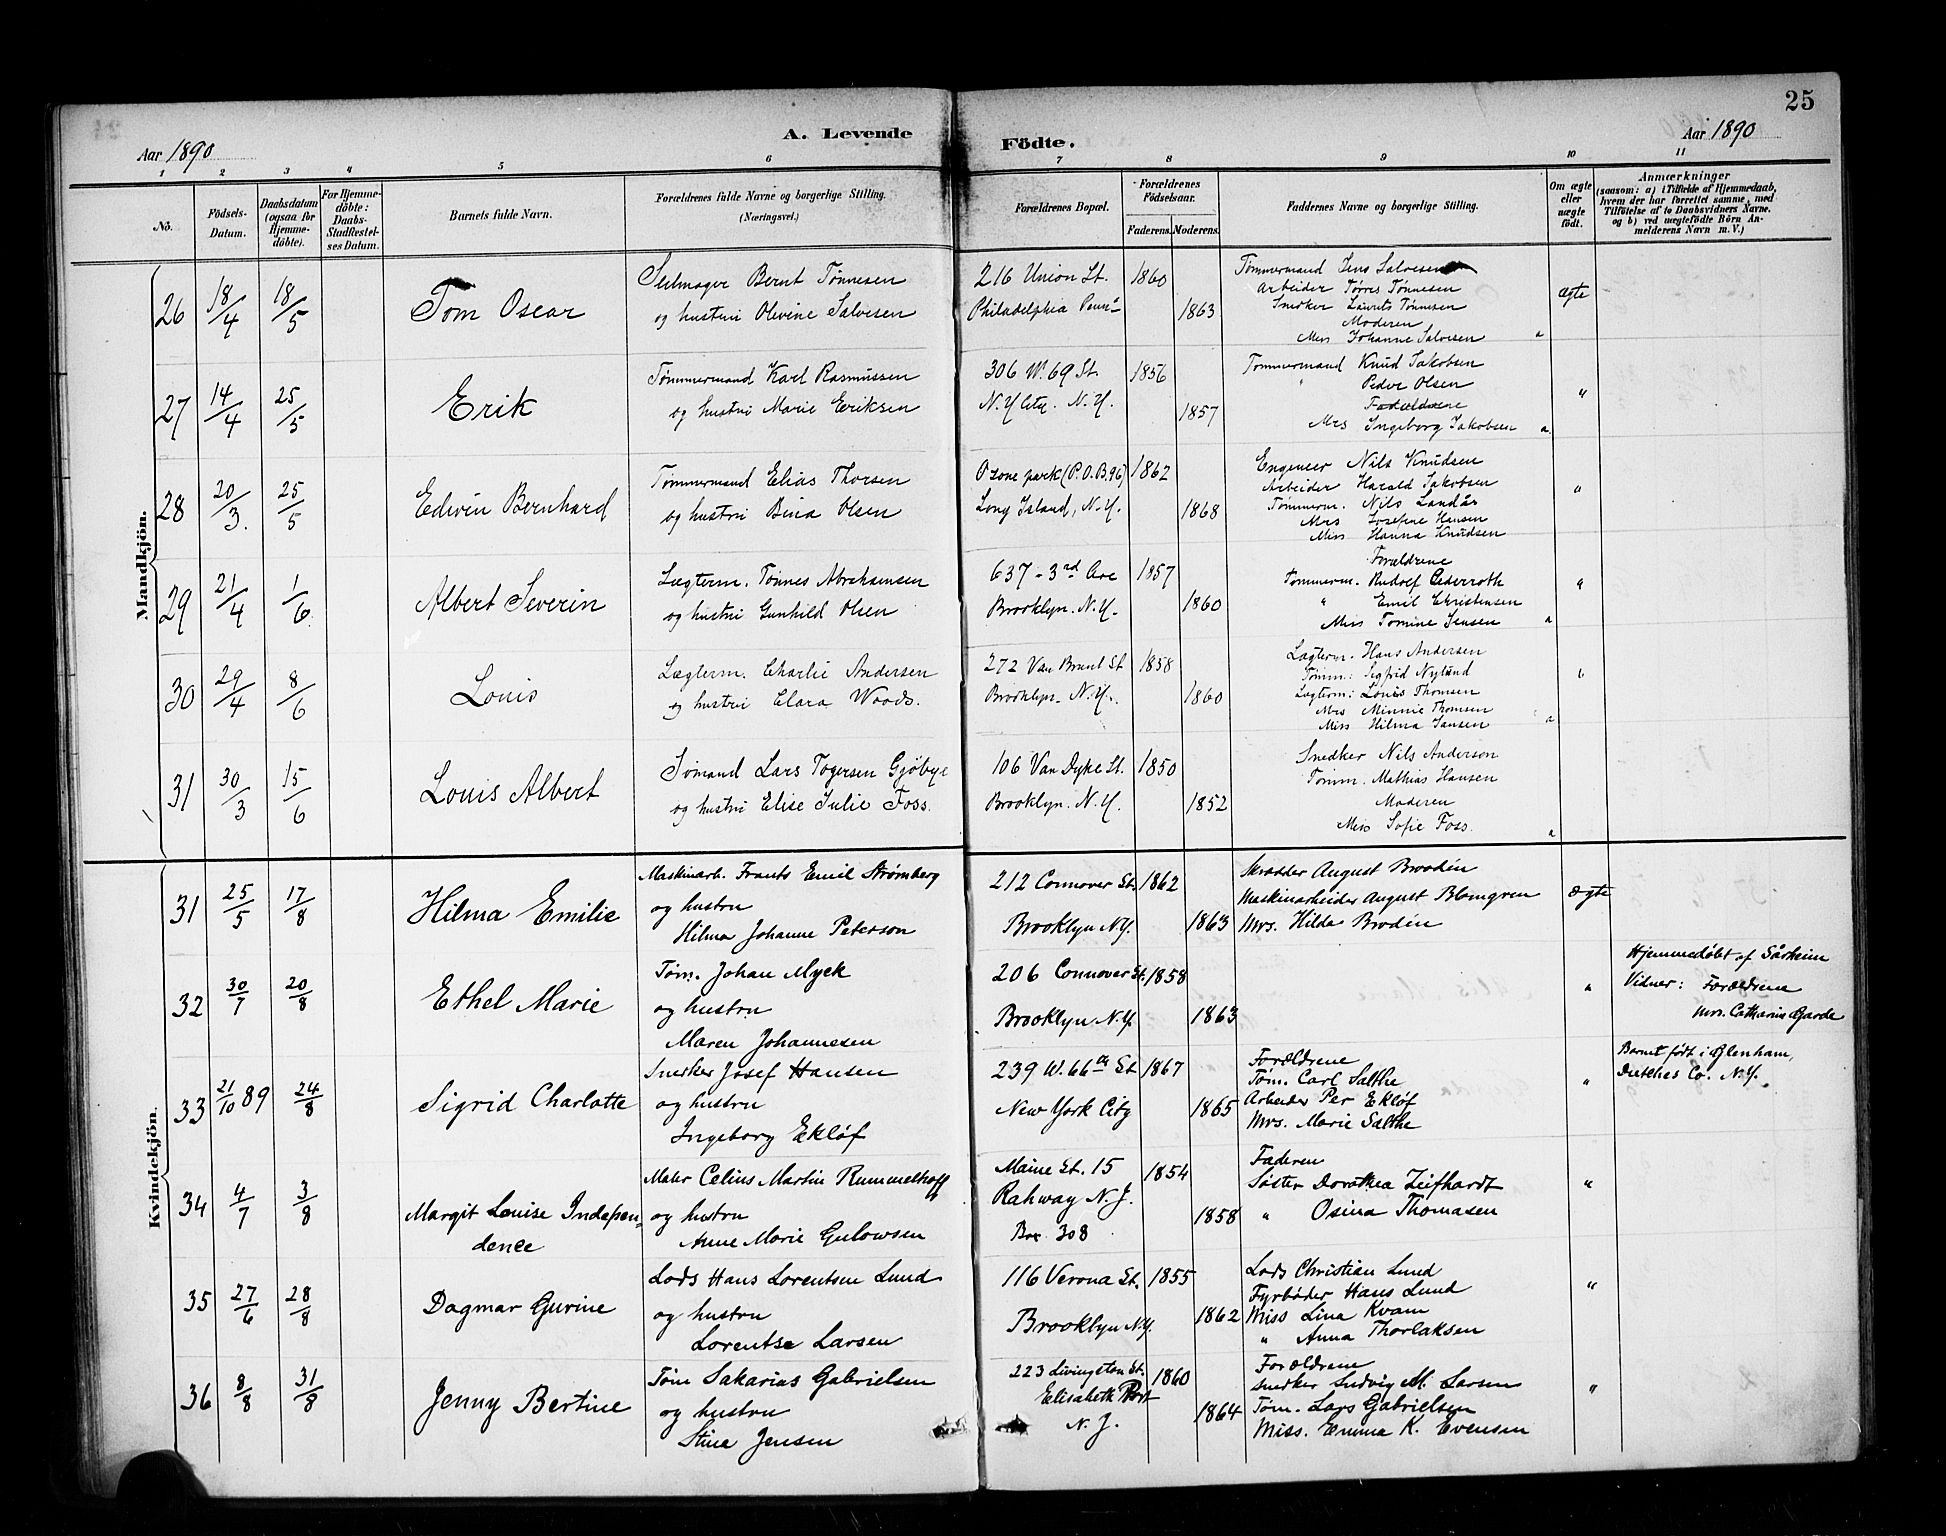 25
Aar 1890
A. Levende
Födte.
Aar 1890
1 2 3 4 5 6 7 8 9 10 11
Nö.
Födsels-
Datum.
Daabsdatum
(ogsaa for
Hjemme-
döbte).
For Hjemme-
döbte:
Daabs-
Stadfæstel-
ses Datum.
Barnets fulde Navn.
Forældrenes fulde Navne og borgerlige Stilling.
(Næringsvei.)
Forældrenes Bopæl.
Forældrenes
Födselsaar.
Faderens. Moderens.
Faddernes Navne og borgerlige Stilling.
Om ægte
eller
uægte
födt.
Anmærkninger
(saasom: a) i Tilfælde af Hjemmedaab,
hvem der har forrettet samme, med
Tilföielse af to Daabsvidners Navne,
og b) ved uægtefödte Börn An-
melderens Navn m. V.)
Mandkjön.
26 18/4 18/5 Tom Oscar
Seilmager Bernt Tønnesen
og hustru Olevine Salvesen
216 Union St. 1860
Philadelphia Penn'a 1863
Tømmermand Jens Salvesen
Arbeider Tørres Tønnesen
Snedker Laurits Tønnesen
Moderen
Miss Johanne Salvesen
ægte
27 14/4 25/5 Erik
Tømmermand Karl Rasmussen
og hustru Marie Eriksen
306 W. 69 St. 1856
N.Y. City. N.Y. 1857
Tømmermand Knud Jakobsen
" Peder Olsen
Forældrene
Mrs Ingeborg Jakobsen
"
28 20/3. 25/5 Edwin Bernhard
Tømmermand Elias Thorsen
og hustru Bina Olsen
Ozone park (P.O.B.96) 1862
Long Island, N.Y. 1868
Engeneer Nils Knudsen
Arbeider Harald Jakobsen
Tømmerm. Nils Landås
Mrs Josefine Hansen
Miss Hanna Knudsen
"
29 21/4 1/6 Albert Severin
Lægterm. Tønnes Abrahamsen
og hustru Gunhild Olsen
637 - 3rd Ave 1857
Brooklyn. N.Y. 1860
Forældrene
Tømmerm. Rudolf Cederroth
" Emil Christensen
Miss Tomine Jensen
"
30 29/4 8/6 Louis
Lægterm. Charlie Andersen
og hustru Clara Woods.
272 Van Brunt St 1858
Brooklyn. N.Y. 1860
Lægterm. Hans Andersen
Tømm: Sigfrid Nylund
Lægterm: Louis Thomsen
Mrs Minnie Thomsen
Miss Hilma Jansen
"
31 30/3 15/6 Louis Albert
Sømand Lars Togersen Gjøbye
og hustru Elise Julie Foss.
106 Van Dyke St. 1850
Brooklyn. N.Y. 1852
Snedker Nils Anderson
Tømm. Mathias Hansen
Moderen
Miss Sofie Foss.
Kvindekjön.
31 25/5 17/8 Hilma Emilie
Maskinarb. Frants Emil Strømberg
og hustru
Hilma Johanne Peterson
212 Connover St. 1862
Brooklyn N.Y. 1863
Skrædder August Brodén
Maskinarbeider August Blomgren
Mrs. Hilda Brodén
Ægte
32 30/7 20/8 Ethel Marie
Tøm. Johan Myck
og hustru
Maren Johannesen
206 Connover St. 1858
Brooklyn N.Y. 1863
"
Hjemmedøbt af Sårheim
Vidner: Forældrene
Mrs. Catharine Garde
33 21/10 89 24/8 Sigrid Charlotte
Snerker Josef Hansen
og hustru
Ingeborg Ekløf
239 W. 66th St 1867
New York City 1865
Forældrene
Tøm. Carl Salthe
Arbeider Per Ekløf
Mrs. Marie Salthe
"
Barnet født i Glenham,
Dutches Co. N.Y.
34 4/7 3/8 Margit Louise Indepen-
dence
Maler Celius Martin Rummelhoff
og hustru
Anne Marie Gulowsen
Maine St. 15 1854
Rahway N.J. 1858
Box 308
Faderen
Søster Dorothea Zeifhardt
" Osina Thomasen
"
35 27/6 28/8 Dagmar Gurine
Lods Hans Lorentsen Lund
og hustru
Lorentse Larsen
116 Verona St. 1855
Brooklyn N.Y. 1862
Lods Christian Lund
Fyrbøder Hans Lund
Miss Lina Kvam
" Anna Thorlaksen
"
36 8/8 31/8 Jenny Bertine
Tøm Sakarias Gabrielsen
og hustru
Stine Jensen
223 Livingston St. 1860
Elisabeth Port 1864
N.J.
Forældrene
Snedker Ludvig M. Larsen
Tøm. Lars Gabrielsen
Miss. Emma K. Evensen
"